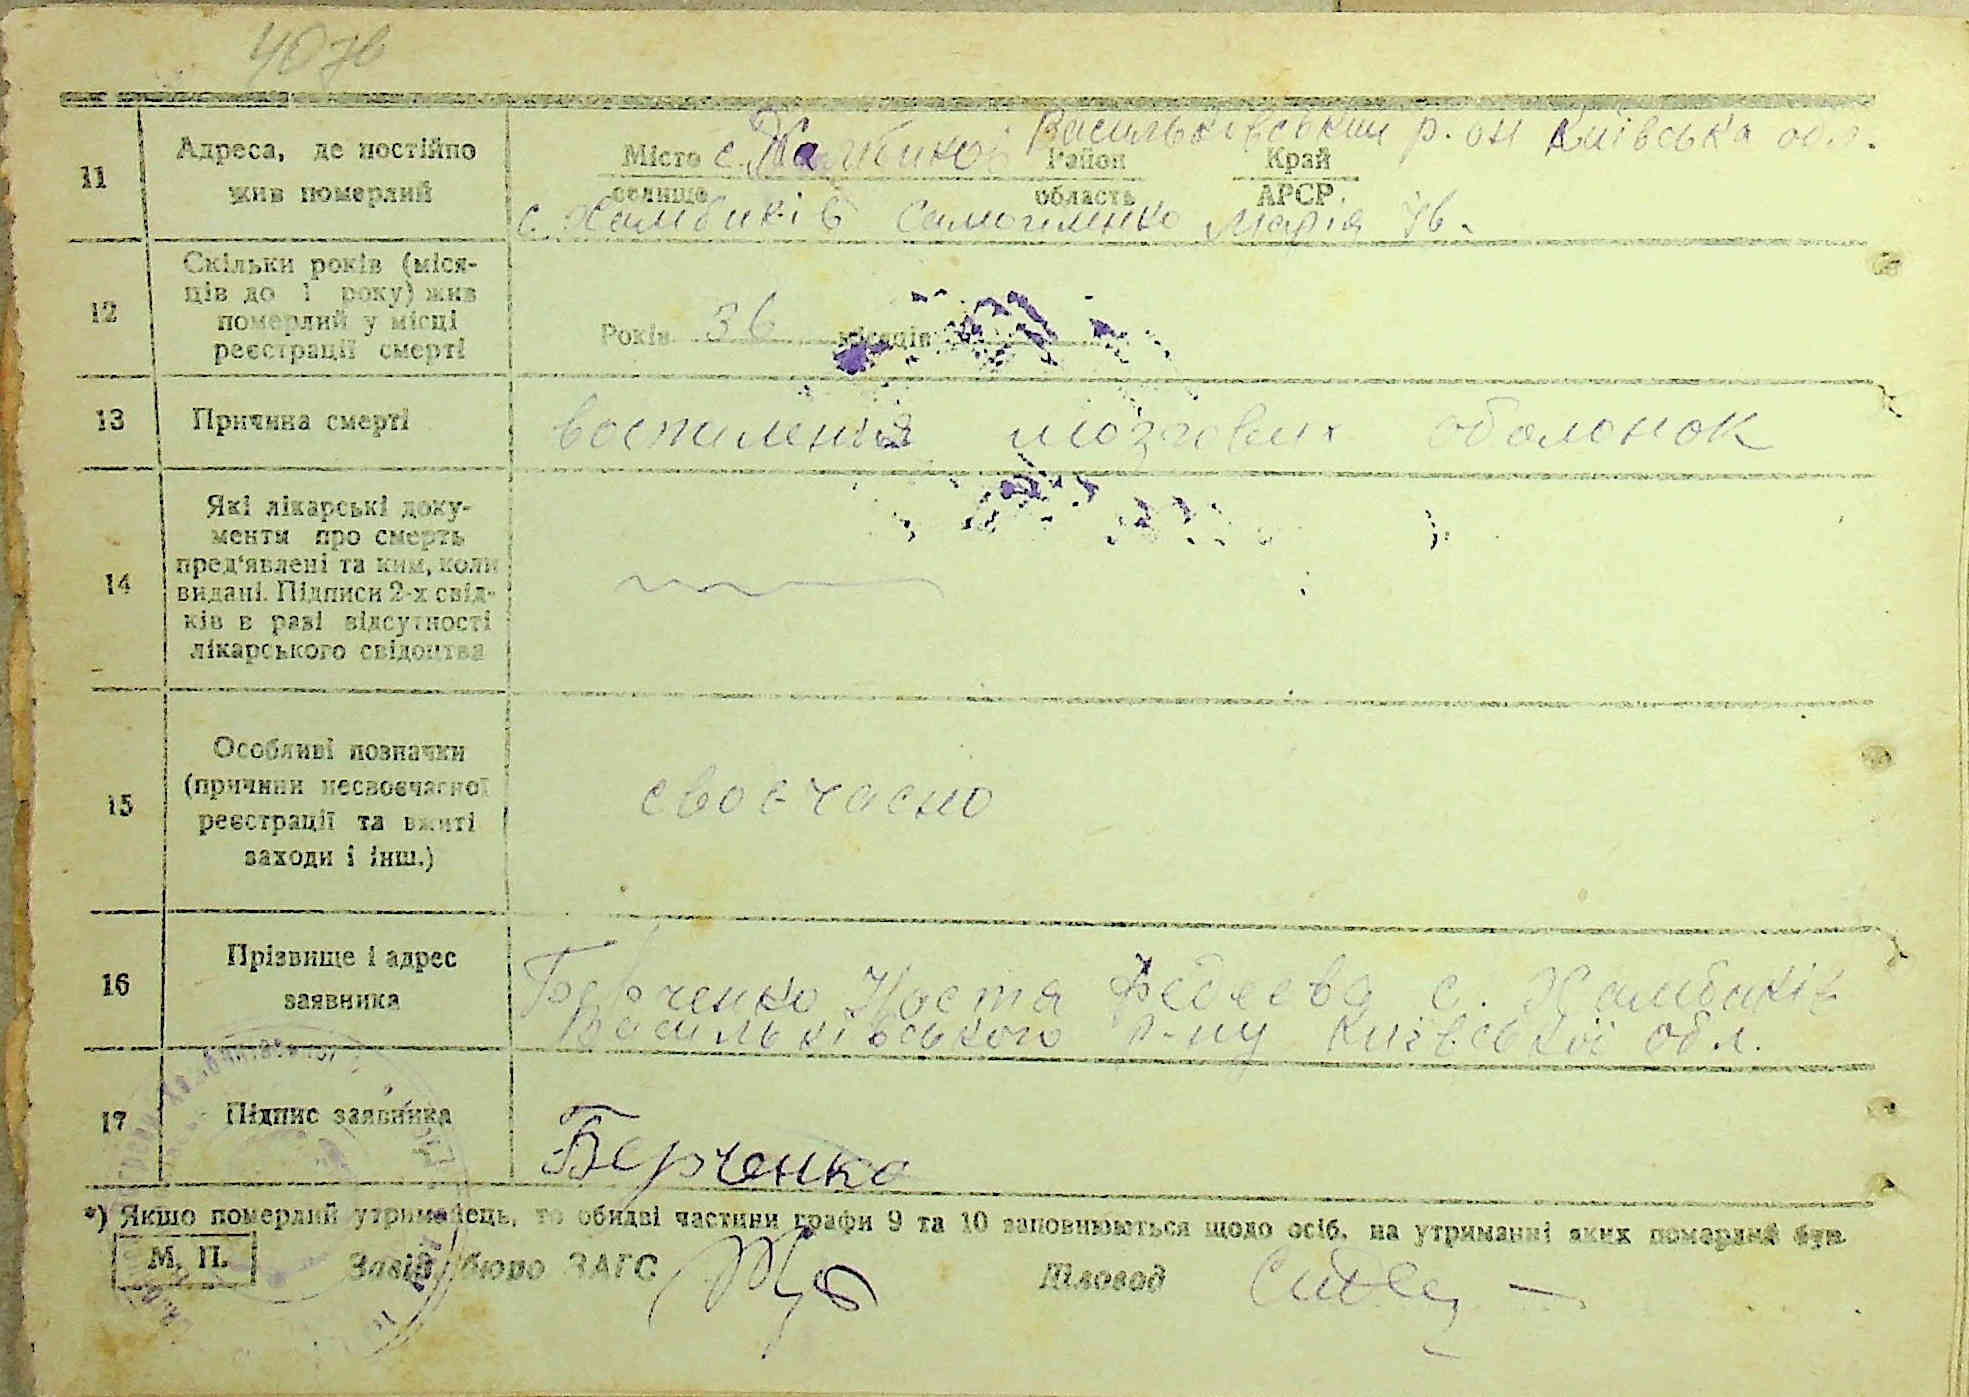 40 зв
11
Адреса, де постійно
жив померлий
Васильківський р. он Київська обл.
Місто с. Район Край
селище область АРСР
с. Хамбиків Самойленко Марія
12
Скільки років (міся-
ців до 1 року) жив
померлий у місці
реєстрації смерті
Років 36 місяців
13
Причина смерті
воспиления мозгових оболонок
14
Які лікарські доку-
менти про смерть
пред'явлені та ким, коли
видані. Підписи 2-х свід-
ків в разі відсутності
лікарського свідоцтва
15
Особливі позначки
(причини несвоєчасної
реєстрації та вжиті
заходи і інш.)
своєчасно
16
Прізвище і адрес
заявника
Берченко Настя с. Хамбиків
Васильківського р-ну Київської обл.
17
Підпис заявника
Берченко
*) Якщо померлий утриманець, то обидві частини графи 9 та 10 заповнюються щодо осіб, на утриманні яких померлий був.
М. П.
Завід. бюро ЗАГС
Діловод